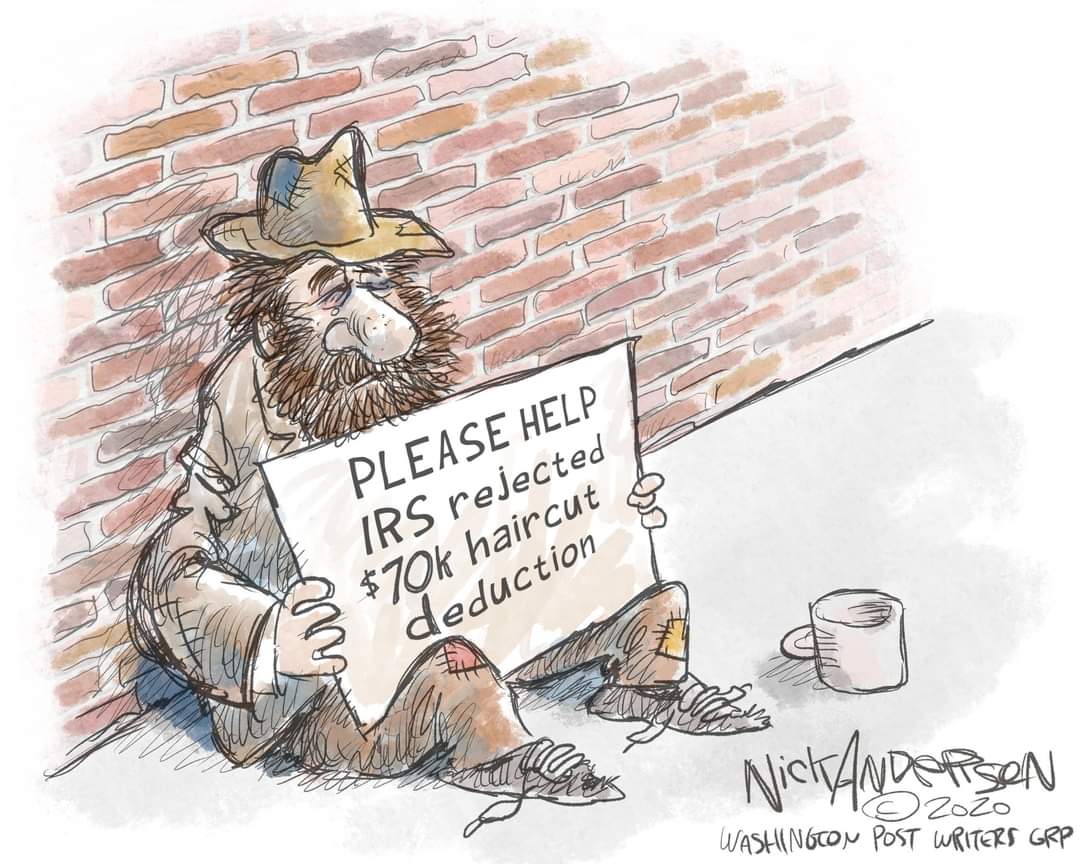 PLEASE HELP
IRS rejected
$70k haircut
deduction
Nick Anderson
© 2020
WASHINGTON POST WRITERS GRP